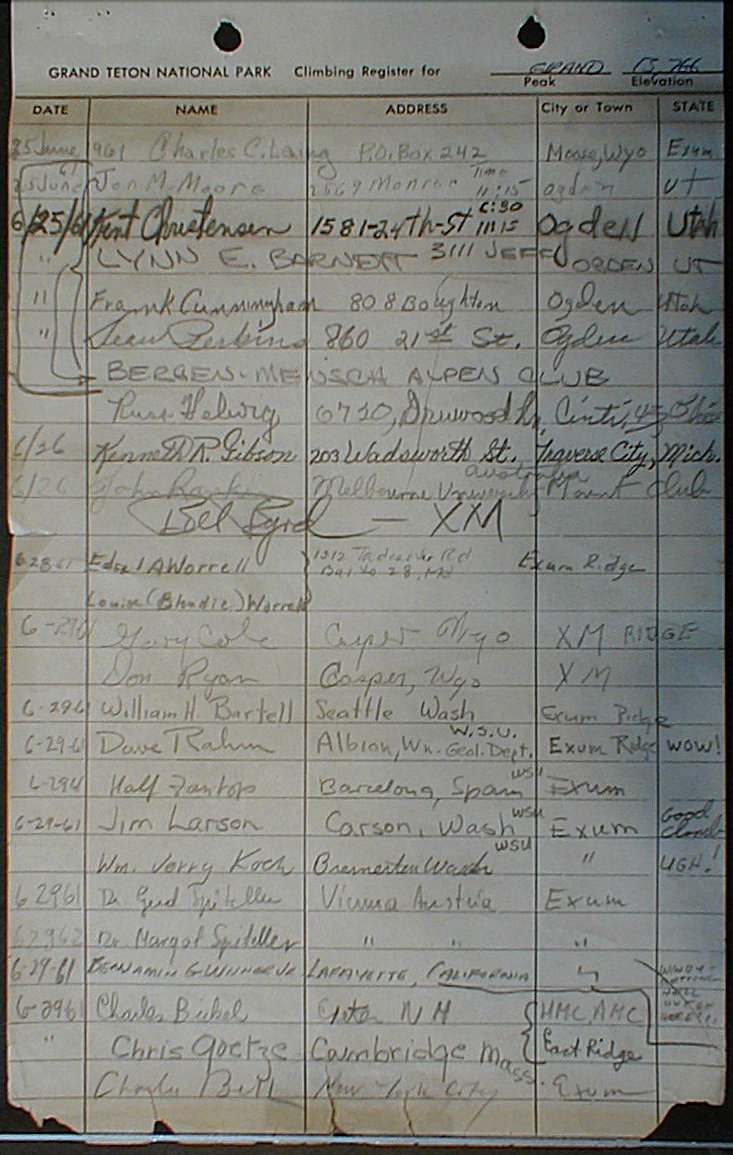 GRAND TETON NATIONAL PARK Climbing Register for GRAND 13,766
Peak Elevation
DATE NAME ADDRESS City or Town STATE
25 June 1961 Charles C. Laing P.O. Box 242 Moose, Wyo Exum
25 June 61 Jon M. Moore 2569 Monroe Time 11:15 Ogden UT
6/25/61 Kent Christensen 1581-24th-St 6:30 11:15 Ogden Utah
" LYNN E. BARNETT 3111 JEFF OGDEN UT
" Frank Cunningham 808 Boughton Ogden Utah
" Sean Perkins 860 21st St. Ogden Utah
BERGEN-MENSCH ALPEN CLUB
Russ Helwig 6720, Druwood Ln, Cinti, Ohio
6/26 Kenneth R. Gibson 203 Wadsworth St. Traverse City, Mich.
6/26 John Melbourne University Mount Club Australia
Bill Byrd — XM
62861 Edsel A Worrell 1312 Rd Exum Ridge
Balto 28, Md
Louise (Blondie) Worrell
6-2961 Gary Cole Casper Wyo XM RIDGE
Don Ryan Casper, Wyo XM
6-2961 William H. Bartell Seattle Wash Exum Ridge
6-29-61 Dave Rahm Albion, Wn. W.S.U. Geol. Dept. Exum Ridge WOW!
6-2961 Half Zantop Barcelona, Spain WSU Exum
6-29-61 Jim Larson Carson, Wash WSU Exum Good climb
Wm. Jerry Koch Bremerton Wash WSU " UGH!
62961 Dr. Gerd Spiteller Vienna Austria Exum
62962 Dr. Margot Spiteller " " "
6-29-61 BENJAMIN G LAFAYETTE, CALIFORNIA "
6-2961 Charles Bickel NH HMC, AMC
" Chris Goetze Cambridge Mass. East Ridge
Charles Bell New York City Exum